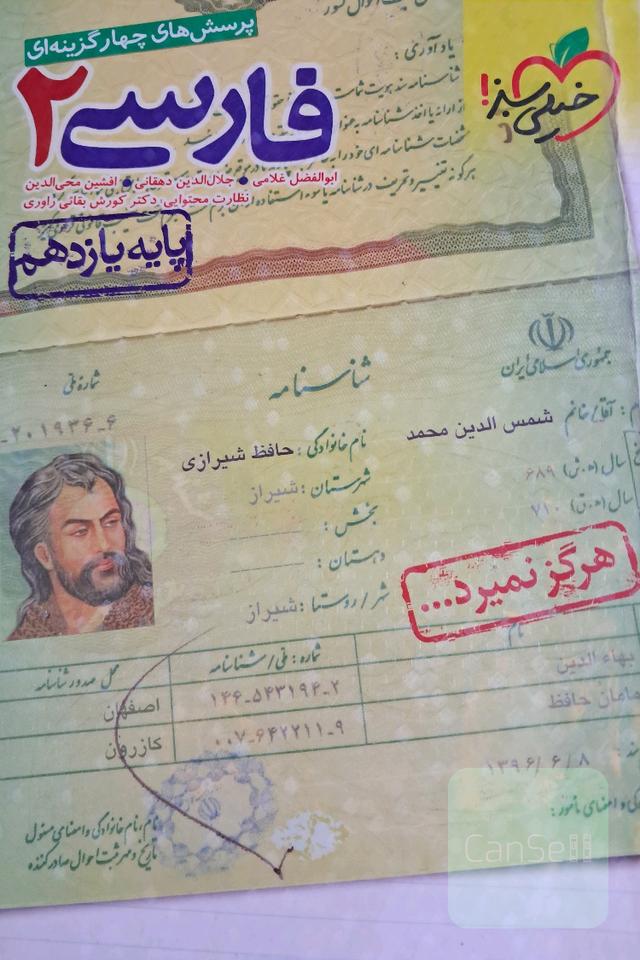 پرسش‌های چهارگزینه‌ای
فارسی ۲
خیلی سبز!
ابوالفضل غلامی • جلال‌الدین دهقانی • افشین محی‌الدین
نظارت محتوایی: دکتر کورش بقائی راوری
پایه یازدهم
یادآوری:
جمهوری اسلامی ایران
شناسنامه
شماره ملی
۲۰۱۹۳۶-۶
آقا/خانم شمس الدین محمد
نام خانوادگی: حافظ شیرازی
سال (ه.ش) ۶۸۹
شهرستان: شیراز
سال (ه.ق) ۷۱۰
بخش:
دهستان:
شهر/روستا: شیراز
هرگز نمیرد...
نام
شماره: ملی/شناسنامه
محل صدور شناسنامه
بهاء الدین
۱۴۶-۵۴۳۱۹۴-۲
اصفهان
حافظ
۰۰۷-۶۴۲۲۱۱-۹
کازرون
۱۳۹۶/۶/۸
نام، نام خانوادگی و امضای مسئول
تاریخ و مهر ثبت احوال صادرکننده
CanSell